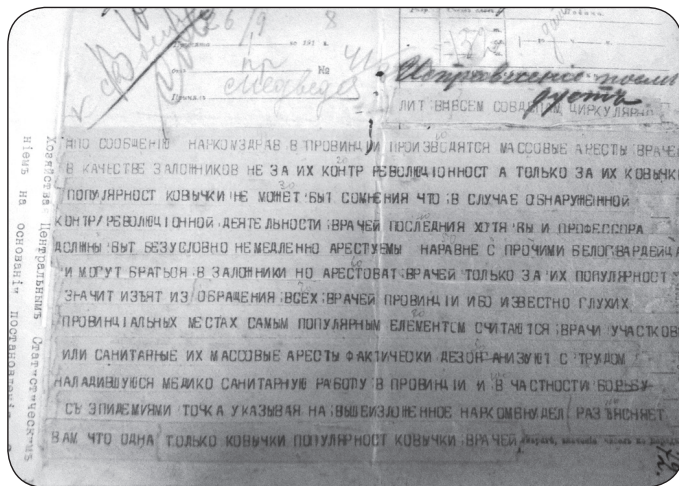 26/9 8
№
Медведе
Исправленiе послѣ
ЛИТ ВНВСЕМ СОВДЕПАМ ЦИРКУЛЯРН
ПО СООБЩЕНIЮ НАРКОМЗДРАВ В ПРОВИНЦIИ ПРОИЗВОДЯТСЯ МАССОВЫЕ АРЕСТЫ ВРАЧЕ
В КАЧЕСТВЕ ЗАЛОЖНИКОВ НЕ ЗА ИХ КОНТР РЕВОЛЮЦIОННОСТ А ТОЛЬКО ЗА ИХ КОВЫЧКИ
ПОПУЛЯРНОСТ КОВЫЧКИ НЕ МОЖЕТ БЫТ СОМНЕНIЯ ЧТО В СЛУЧАЕ ОБНАРУЖЕННОЙ
КОНТР/РЕВОЛЮЦIОННОЙ ДЕЯТЕЛЬНОСТИ ВРАЧЕЙ ПОСЛЕДНIЯ ХОТЯ БЫ И ПРОФЕССОРА
ДОЛЖНЫ БЫТ БЕЗУСЛОВНО НЕМЕДЛЕННО АРЕСТУЕМЫ НАРАВНЕ С ПРОЧИМИ БЕЛОГВАРДЕЙЦА
И МОГУТ БРАТЬСЯ В ЗАЛОЖНИКИ НО АРЕСТОВАТ ВРАЧЕЙ ТОЛЬКО ЗА ИХ ПОПУЛЯРНОСТ
ЗНАЧИТ ИЗЪЯТ ИЗ ОБРАЩЕНIЯ ВСЕХ ВРАЧЕЙ ПРОВИНЦIИ ИБО ИЗВЕСТНО ГЛУХИХ
ПРОВИНЦIАЛЬНЫХ МЕСТАХ САМЫМ ПОПУЛЯРНЫМ ЕЛЕМЕНТОМ СЧИТАЮТСЯ ВРАЧИ УЧАСТКОВ
ИЛИ САНИТАРНЫЕ ИХ МАССОВЫЕ АРЕСТЫ ФАКТИЧЕСКИ ДЕЗОРГАНИЗУЮТ С ТРУДОМ
НАЛАДИВШУЮСЯ МЕДИКО САНИТАРНУЮ РАБОТУ В ПРОВИНЦIИ И В ЧАСТНОСТИ БОРЬБУ
СЪ ЭПИДЕМИЯМИ ТОЧКА УКАЗЫВАЯ НА ВЫШЕИЗЛОЖЕННОЕ НАРКОМВНУДЕЛ РАЗЪЯСНЯЕТ
ВАМ ЧТО ОДНА ТОЛЬКО КОВЫЧКИ ПОПУЛЯРНОСТ КОВЫЧКИ ВРАЧЕЙ
Хозяйства Центральнымъ Статистическимъ
нiемъ на основанiи постановленi